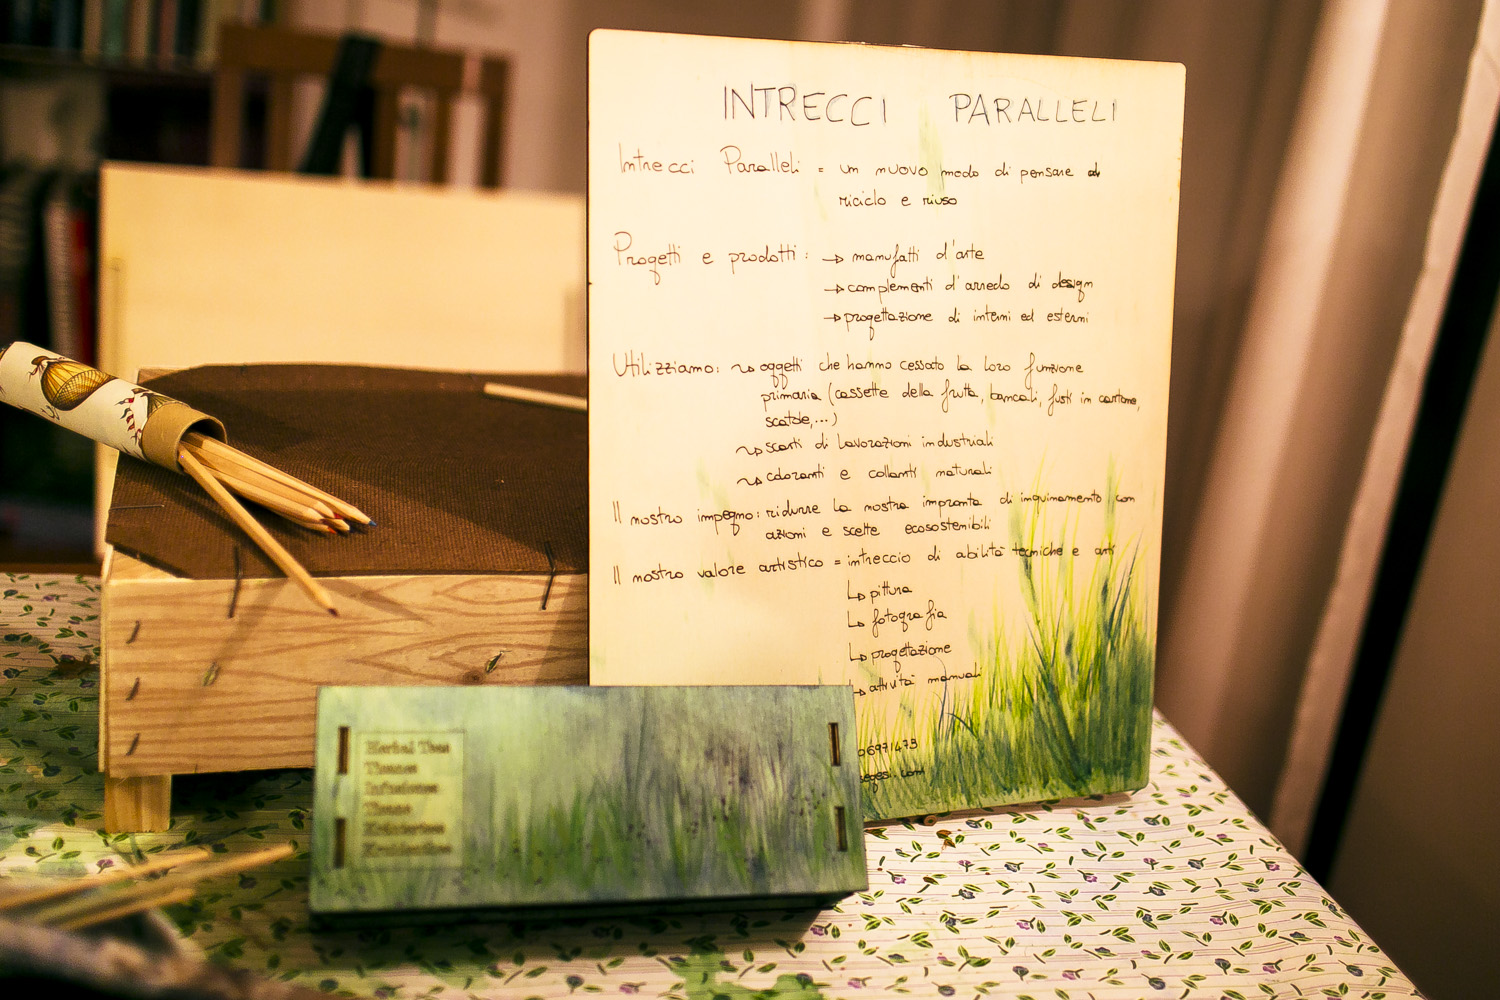 INTRECCI PARALLELI
Intrecci Paralleli = un nuovo modo di pensare al
riciclo e riuso
Progetti e prodotti: → manufatti d'arte
→ complementi d'arredo di design
→ progettazione di interni ed esterni
Utilizziamo: ↝ oggetti che hanno cessato la loro funzione
primaria (cassette della frutta, bancali, fusti in cartone,
scatole,...)
↝ scarti di lavorazioni industriali
↝ coloranti e collanti naturali
Il nostro impegno: ridurre la nostra impronta di inquinamento con
azioni e scelte ecosostenibili
Il nostro valore artistico = intreccio di abilità tecniche e arti
↳ pittura
↳ fotografia
↳ progettazione
↳ attività manuali
06971473
.com
Herbal Teas
Tisanes
Infusiones